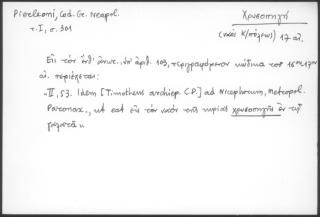 Pierleoni, Cod. Gr. Neapol.
τ. I, σ. 301
Χρυσοπηγή
(ναός Κ/πόλεως) 17 αἰ.
Εἰς τόν ὑπ' ἀριθ. 103, περιγραφόμενον κώδικα τοῦ 16ου-17ου
αἰ. περιέχεται:
"II, 53. Idem [Timotheus archiep. C.P.] ad Nicephorum, Metropol.
Paronax., ut eat εἰς τόν ναόν τῆς κυρίας χρυσοπηγῆς ἐν τῷ
γαλατᾷ".